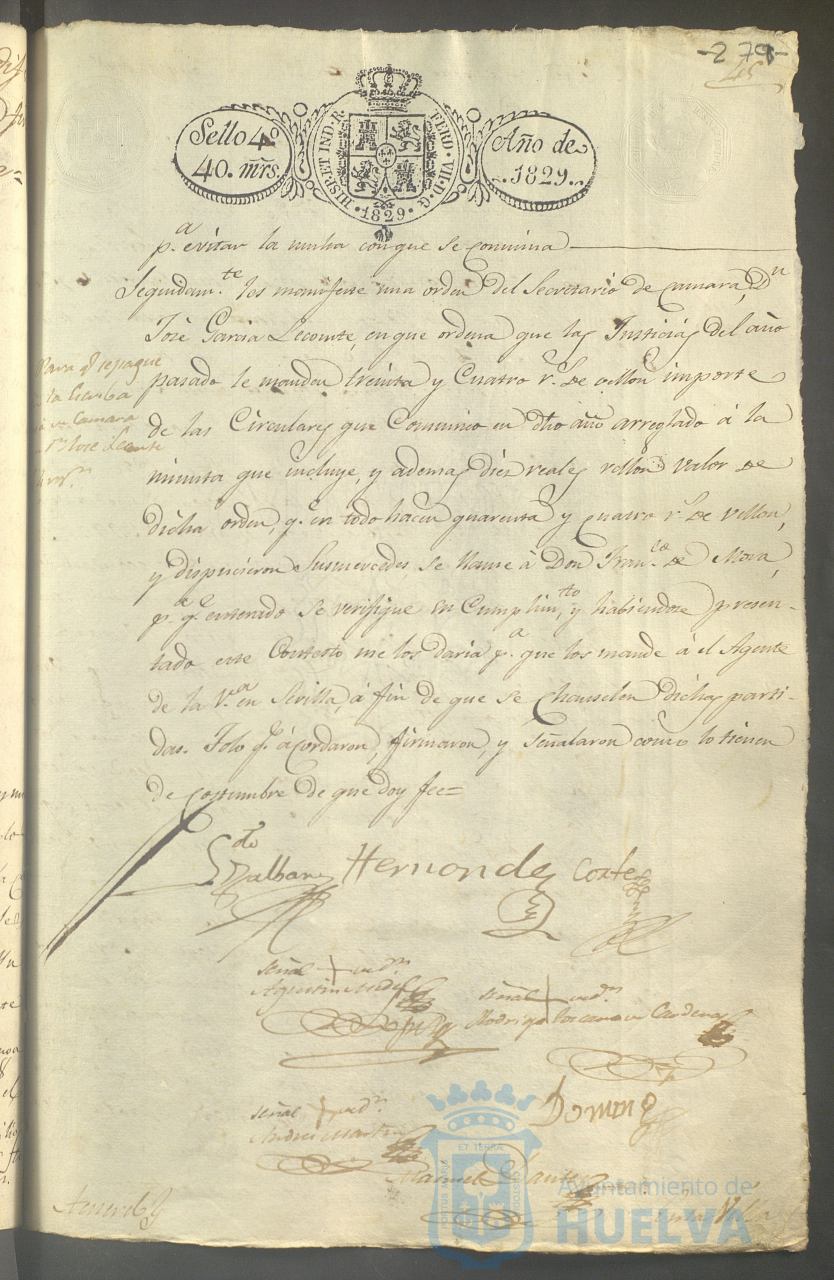 -279-
45
Sello 4º
40. mrs.
HISP. ET IND. R.
FERD. VII. D. G.
1829.
Año de
1829.
pª evitar la multa con que se conmina
Seguidamte les manifesté una orden del Secretario de Camara, Dn
José Garcia Lecomte, en que ordena que las Justicias del año
pasado le manden treinta y Cuatro rs. De vellon importe
de las Circulares que Comunico en dho año arreglado á la
minuta que incluye, y ademas dies reales vellon valor de
dicha orden, qe en todo hacen quarenta y cuatro rs. De vellon,
y dispusieron Susmercedes se llame á Don Franco de Mora,
pª qe enterado se verifique su Cumplimto, y habiendose presen-
tado este Contesto me los daria pª que los mande á el Agente
de la Vª en Sevilla, á fin de que se chanselen dichas parti-
das. Todo qe acordaron, firmaron, y señalaron como lo tienen
de costumbre de que doy fee=
Para qe se pague
la
Camara
Dn José Lecomte
Hernondes Cortes
señal + de
Agustin
señal + de
Rodrigo Cardenas
señal + de
Andres Martin
Doming
Manuel
Acuerdo
ET TERRÆ
Ayuntamiento de
HUELVA